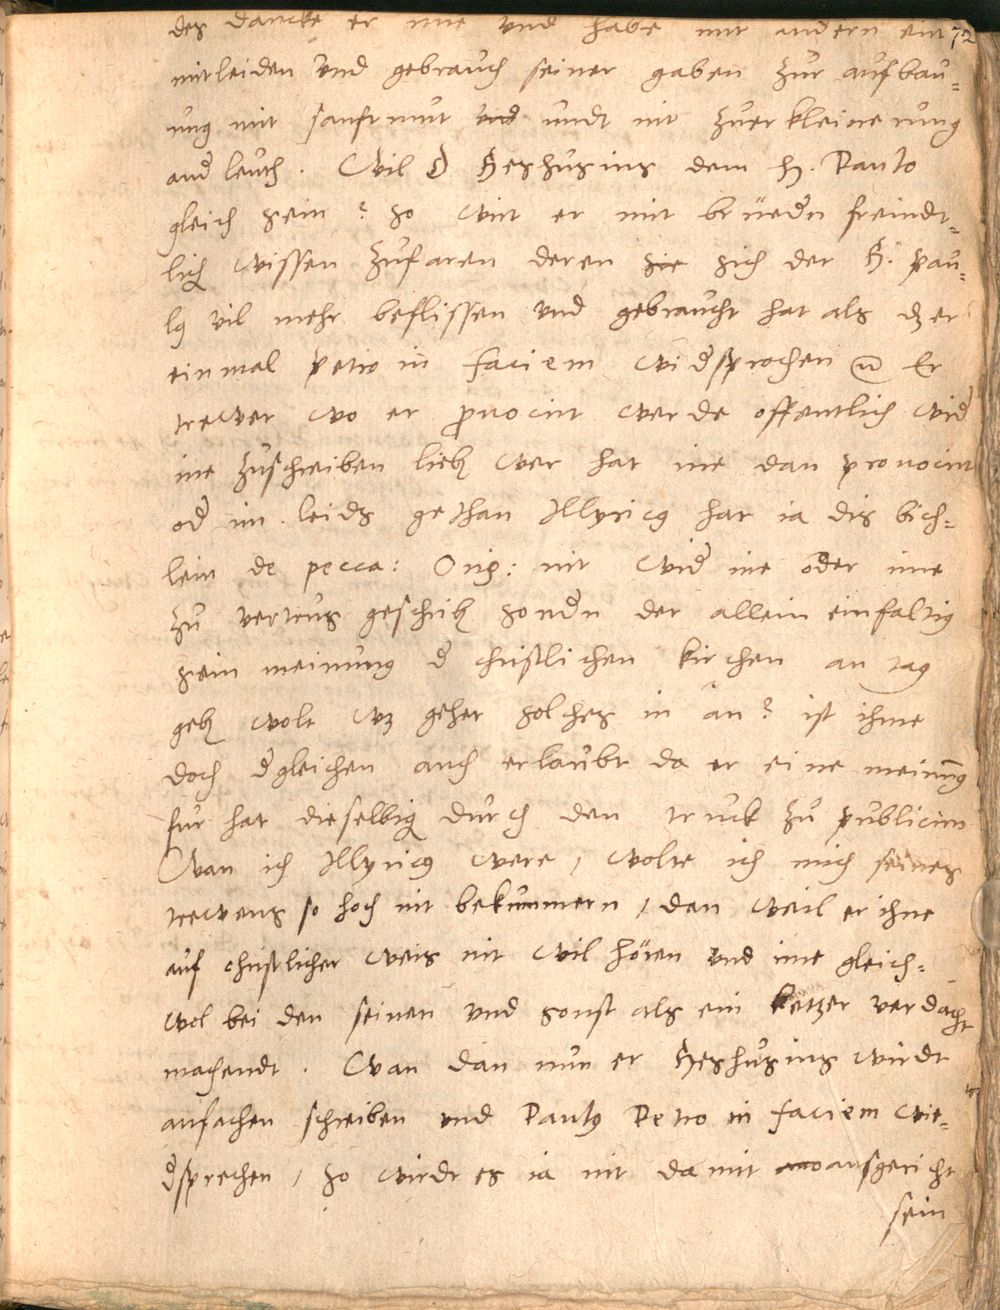 des dancke er ime vnd habe mit andern ein 72
mitleiden vnd gebrauch seiner gaben zur aufbau-
ung mit sanftmut vnd undt nit zuerkleinerung
and leuth. Wil d Heshusius dem H. Paulo
gleich sein? so wirt er mit brüedn freindt-
lich wissen zufaren deren sie sich der H. Pau-
lg vil mehr beflissen vnd gebraucht hat als dz er
einmal Petro in faciem widsprochen Er
trewet wo er provocirt werde offentlich wid
ine zuschreiben lieb wer hat ine dan provocirt
od im leids gethan Illyricg hat ia dis bich-
lein de pecca: Orig: nit wid ine oder ime
zu vertrus geschrib sondn der allein einfaltig
sein meinung d christlichen kirchen an tag
geb wolt wz gehet solches in an? ist ihme
doch dgleichen auch erlaubt da er eine meinung
fur hat dieselbig durch den truck zu publicirn
Wan ich Illyricg were, wolte ich mich seines
trewens so hoch nit bekummern, dan weil er ihne
auf christlicher weis nit wil hören vnd ime gleich-
wol bei den seinen vnd sonst als ein ketzer verdacht
machendt. Wan dan nun er Heshusius wirdt
anfachen schreiben vnd Paulg Petro in faciem wie-
dsprechen, so wirdt es ia nit damit ausgericht
sein